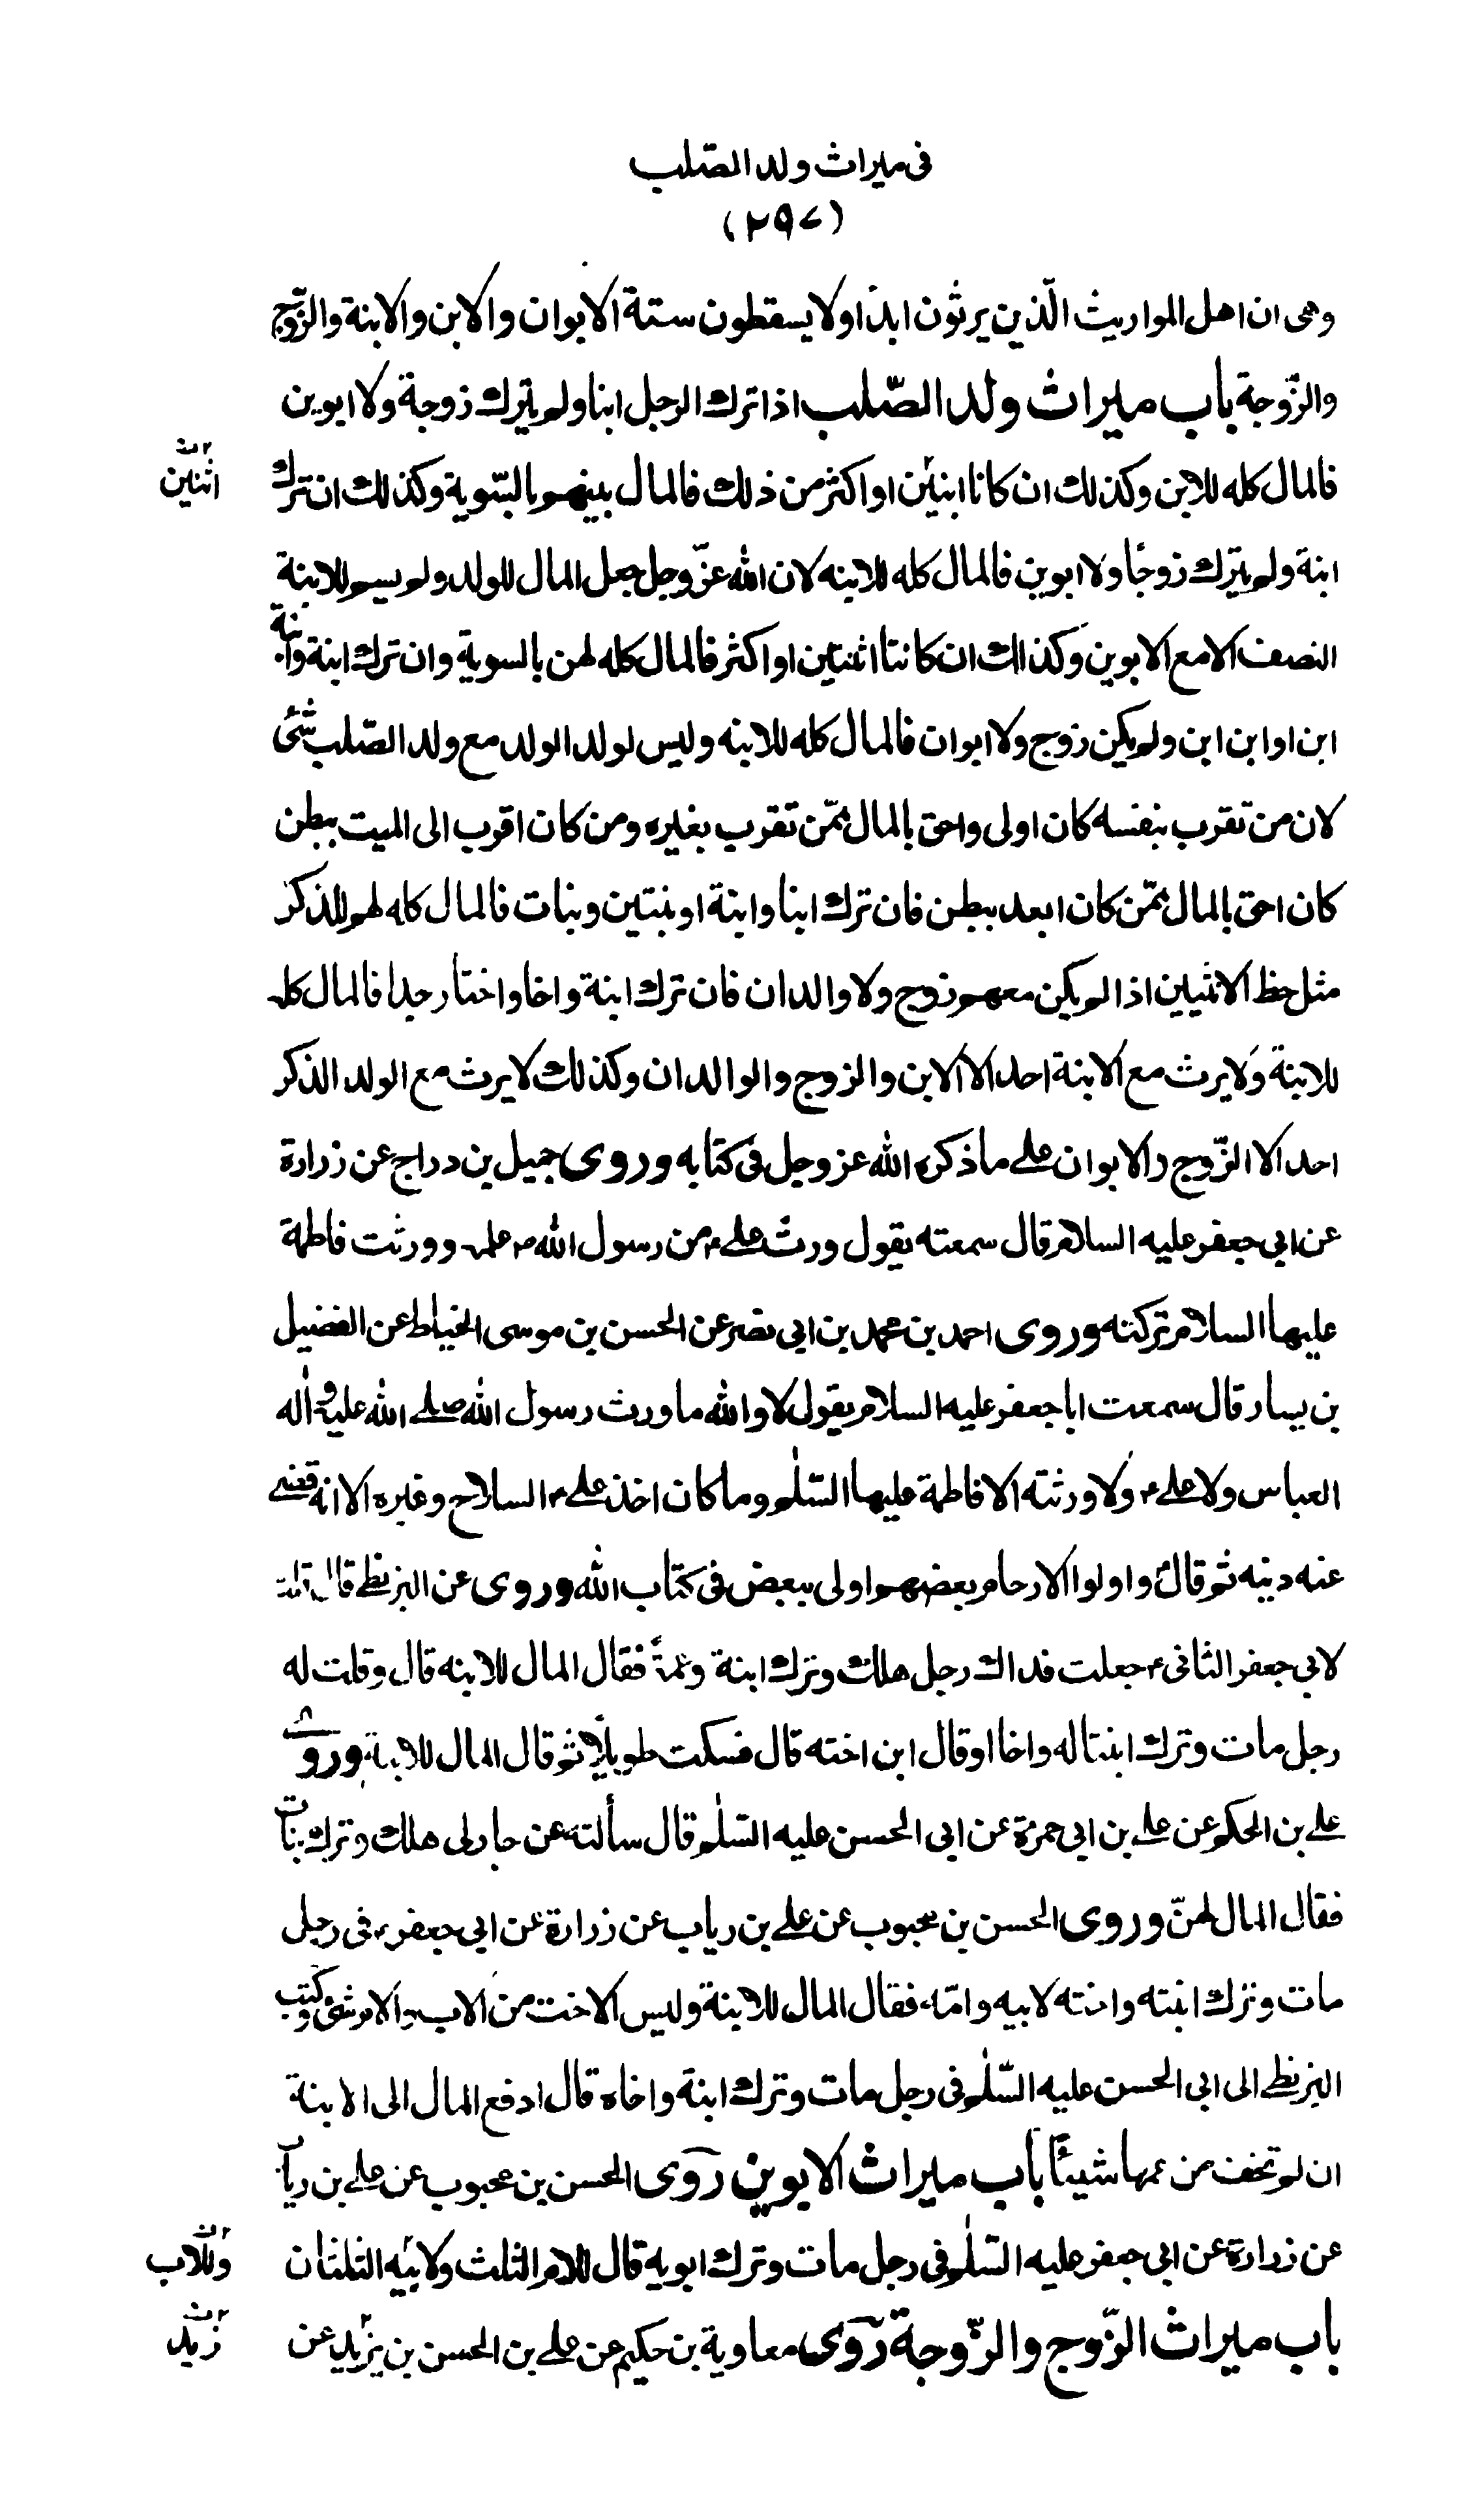 فى ميراث ولد الصّلب
(٢٩٧)
وهى ان اهل المواريث الّذين يرثون ابدًا ولا يسقطون ستة الابوان والابن والابنة والزّوج
والزّوجة باب ميراث ولد الصّلب اذا ترك الرجل ابنا ولم يترك زوجة ولا ابوين
فالمال كله للابن وكذلك ان كانا ابنين او اكثر من ذلك فالمال بينهم بالسّوية وكذلك ان ترك
اثنين
ابنة ولم يترك زوجًا ولا ابوين فالمال كله للابنه لان الله عزّ وجل جعل المال للولد ولم يسم للابنة
النصف الا مع الابوين وكذلك ان كانتا اثنتين او اكثر فالمال كله لهن بالسوية وان ترك ابنة وابنة
ابن او ابن ابن ولم يكن زوج ولا ابوان فالمال كله للابنه وليس لولد الولد مع ولد الصّلب شئ
لان من تقرب بنفسه كان اولى واحق بالمال ممّن تقرب بغيره ومن كان اقرب الى الميت ببطن
كان احق بالمال ممّن كان ابعد ببطن فان ترك ابنا وابنة او بنتين وبنات فالمال كله لهم للذكر
مثل حظ الانثيين اذا لم يكن معهم زوج ولا والدان فان ترك ابنة واخا واختا وجدا فالمال كله
للابنة ولا يرث مع الابنة احد الا الابن والزوج والوالدان وكذلك لا يرث مع الولد الذكر
احد الا الزّوج والابوان على ما ذكره الله عز وجل فى كتابه وروى جميل بن دراج عن زرارة
عن ابى جعفر عليه السلام قال سمعته يقول ورث على ع من رسول الله ص علمه وورثت فاطمة
عليها السلام تركته وروى احمد بن محمد بن ابى نصر عن الحسن بن موسى الخياط عن الفضيل
بن يسار قال سمعت ابا جعفر عليه السلام يقول لا والله ما ورث رسول الله صلى الله عليه واله
العباس ولا على ع ولا ورثته الا فاطمة عليها السّلم وما كان اخذ على ع السلاح وغيره الا انه قضى
عنه دينه ثم قال واولوا الارحام بعضهم اولى ببعض فى كتاب الله وروى عن البزنطى قال قلت
لابى جعفر الثانى ع جعلت فداك رجل هلك وترك ابنة وعمة فقال المال للابنه قال وقلت له
رجل مات وترك ابنتا له واخا او قال ابن اخته قال فسكت طويلا ثم قال المال للابنة وروى
على بن الحكم عن على بن ابى حمزة عن ابى الحسن عليه السّلم قال سألته عن جار لى هلك وترك بنات
فقال المال لهنّ وروى الحسن بن محبوب عن على بن رياب عن زرارة عن ابى جعفر ع فى رجل
مات وترك ابنته واخته لابيه وامّه فقال المال للابنة وليس لاخت من الاب والام شئ وكتب
البزنطى الى ابى الحسن عليه السّلم فى رجل مات وترك ابنة واخاه قال ادفع المال الى الابنة
ان لم تخف من عمها شيئًا باب ميراث الابوين روى الحسن بن محبوب عن على بن رياب
عن زرارة عن ابى جعفر عليه السّلم فى رجل مات وترك ابويه قال للام الثلث ولابيه الثلثان
وللاب
باب ميراث الزّوج والزّوجة روى معاوية بن حكيم عن على بن الحسن بن يزيد عن
زيد